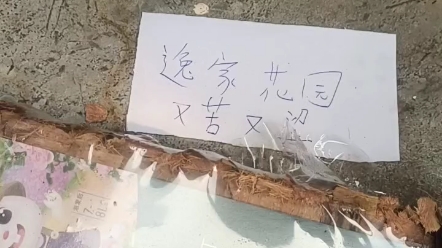 逸家花园
又苦又涩